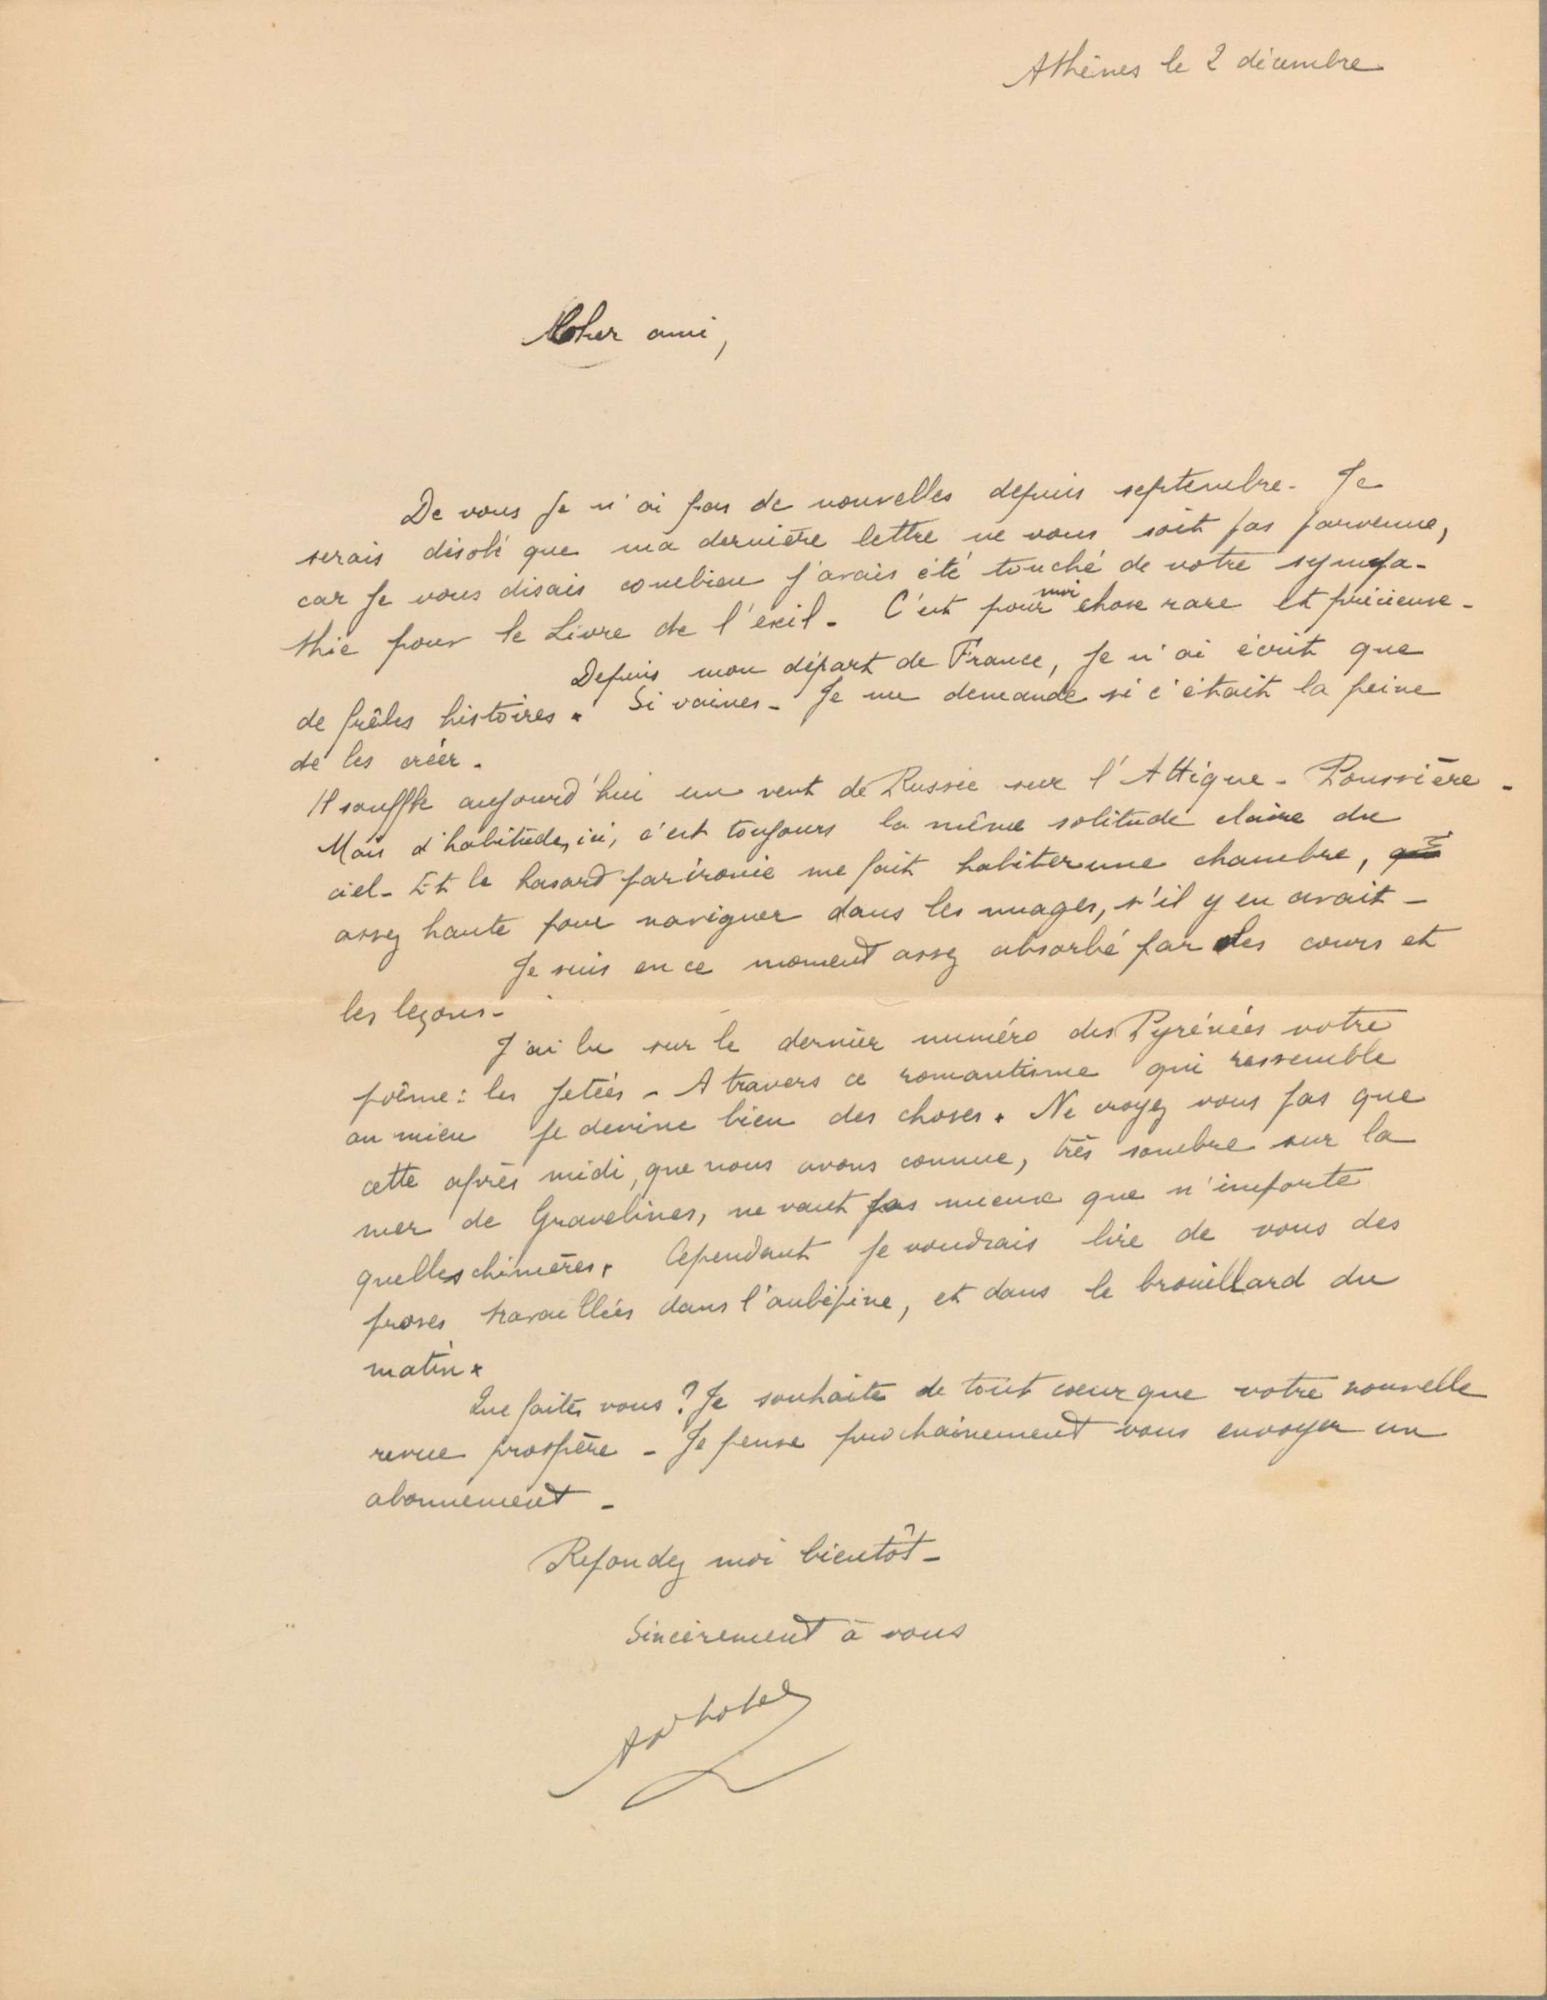 Athènes le 2 décembre
Cher ami,
De vous je n'ai pas de nouvelles depuis septembre - Je
serais désolé que ma dernière lettre ne vous soit pas parvenue,
car je vous disais combien j'avais été touché de votre sympa-
thie pour le Livre de l'exil - C'est pour moi chose rare et précieuse -
Depuis mon départ de France, je n'ai écrit que
de frêles histoires. Si vaines - Je me demande si c'était la peine
de les créer.
Il souffle aujourd'hui un vent de Russie sur l'Attique - Poussière -
Mais d'habitude, ici, c'est toujours la même solitude claire du
ciel - Et le hasard par ironie me fait habiter une chambre,
assez haute pour naviguer dans les nuages, s'il y en avait -
Je suis en ce moment assez absorbé par les cours et
les leçons -
J'ai lu sur le dernier numéro des Pyrénées votre
poême : les Jetées - A travers ce romantisme qui ressemble
au mien je devine bien des choses. Ne croyez vous pas que
cette après midi, que nous avons connue, très sombre sur la
mer de Gravelines, ne vaut pas mieux que n'importe
quelles chimères. Cependant je voudrais lire de vous des
proses travaillées dans l'aubépine, et dans le brouillard du
matin.
Que faites vous ? Je souhaite de tout coeur que votre nouvelle
revue prospère - Je pense prochainement vous envoyer un
abonnement -
Répondez moi bientôt -
Sincèrement à vous